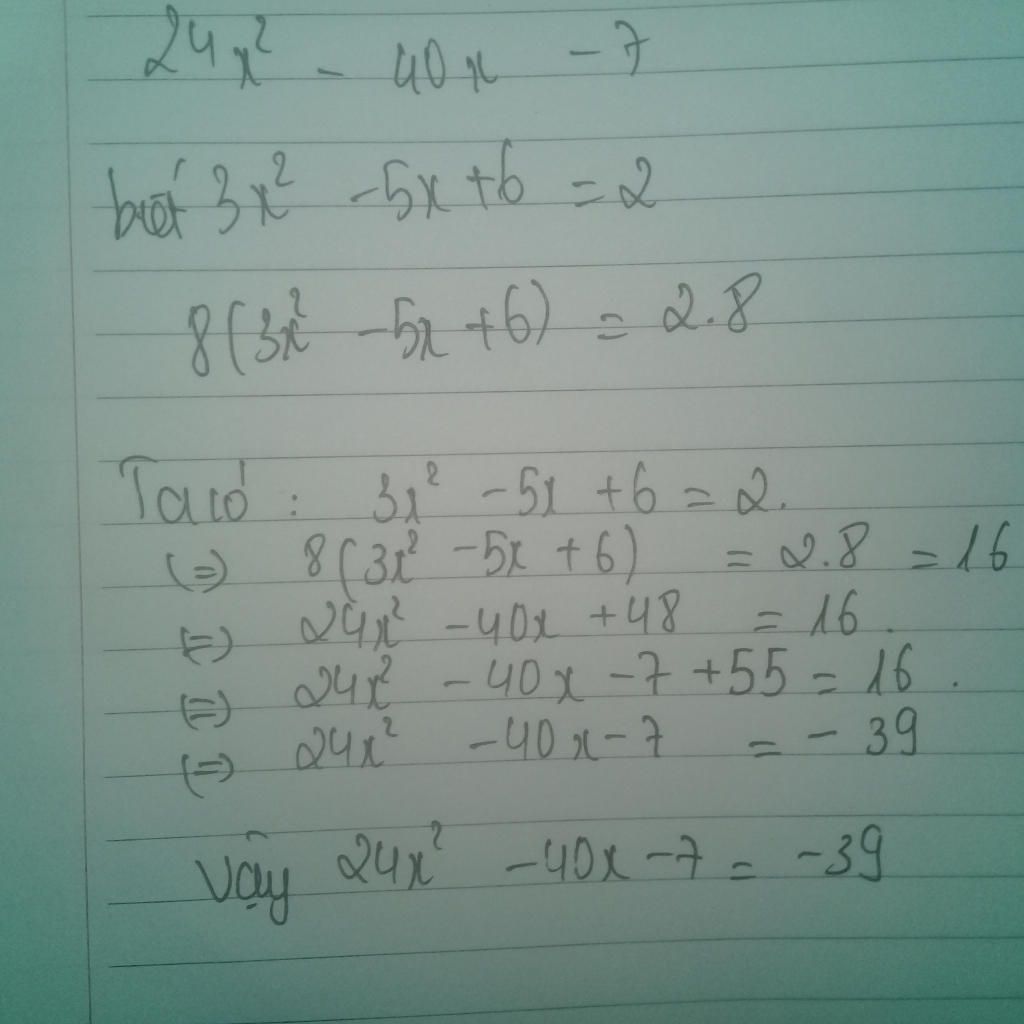 24x² - 40x - 7
biết 3x² - 5x + 6 = 2
8(3x² - 5x + 6) = 2.8
Ta có : 3x² - 5x + 6 = 2.
(=) 8(3x² - 5x + 6) = 2.8 = 16
(=) 24x² - 40x + 48 = 16.
(=) 24x² - 40x - 7 + 55 = 16.
(=) 24x² - 40x - 7 = - 39
Vậy 24x² - 40x - 7 = - 39